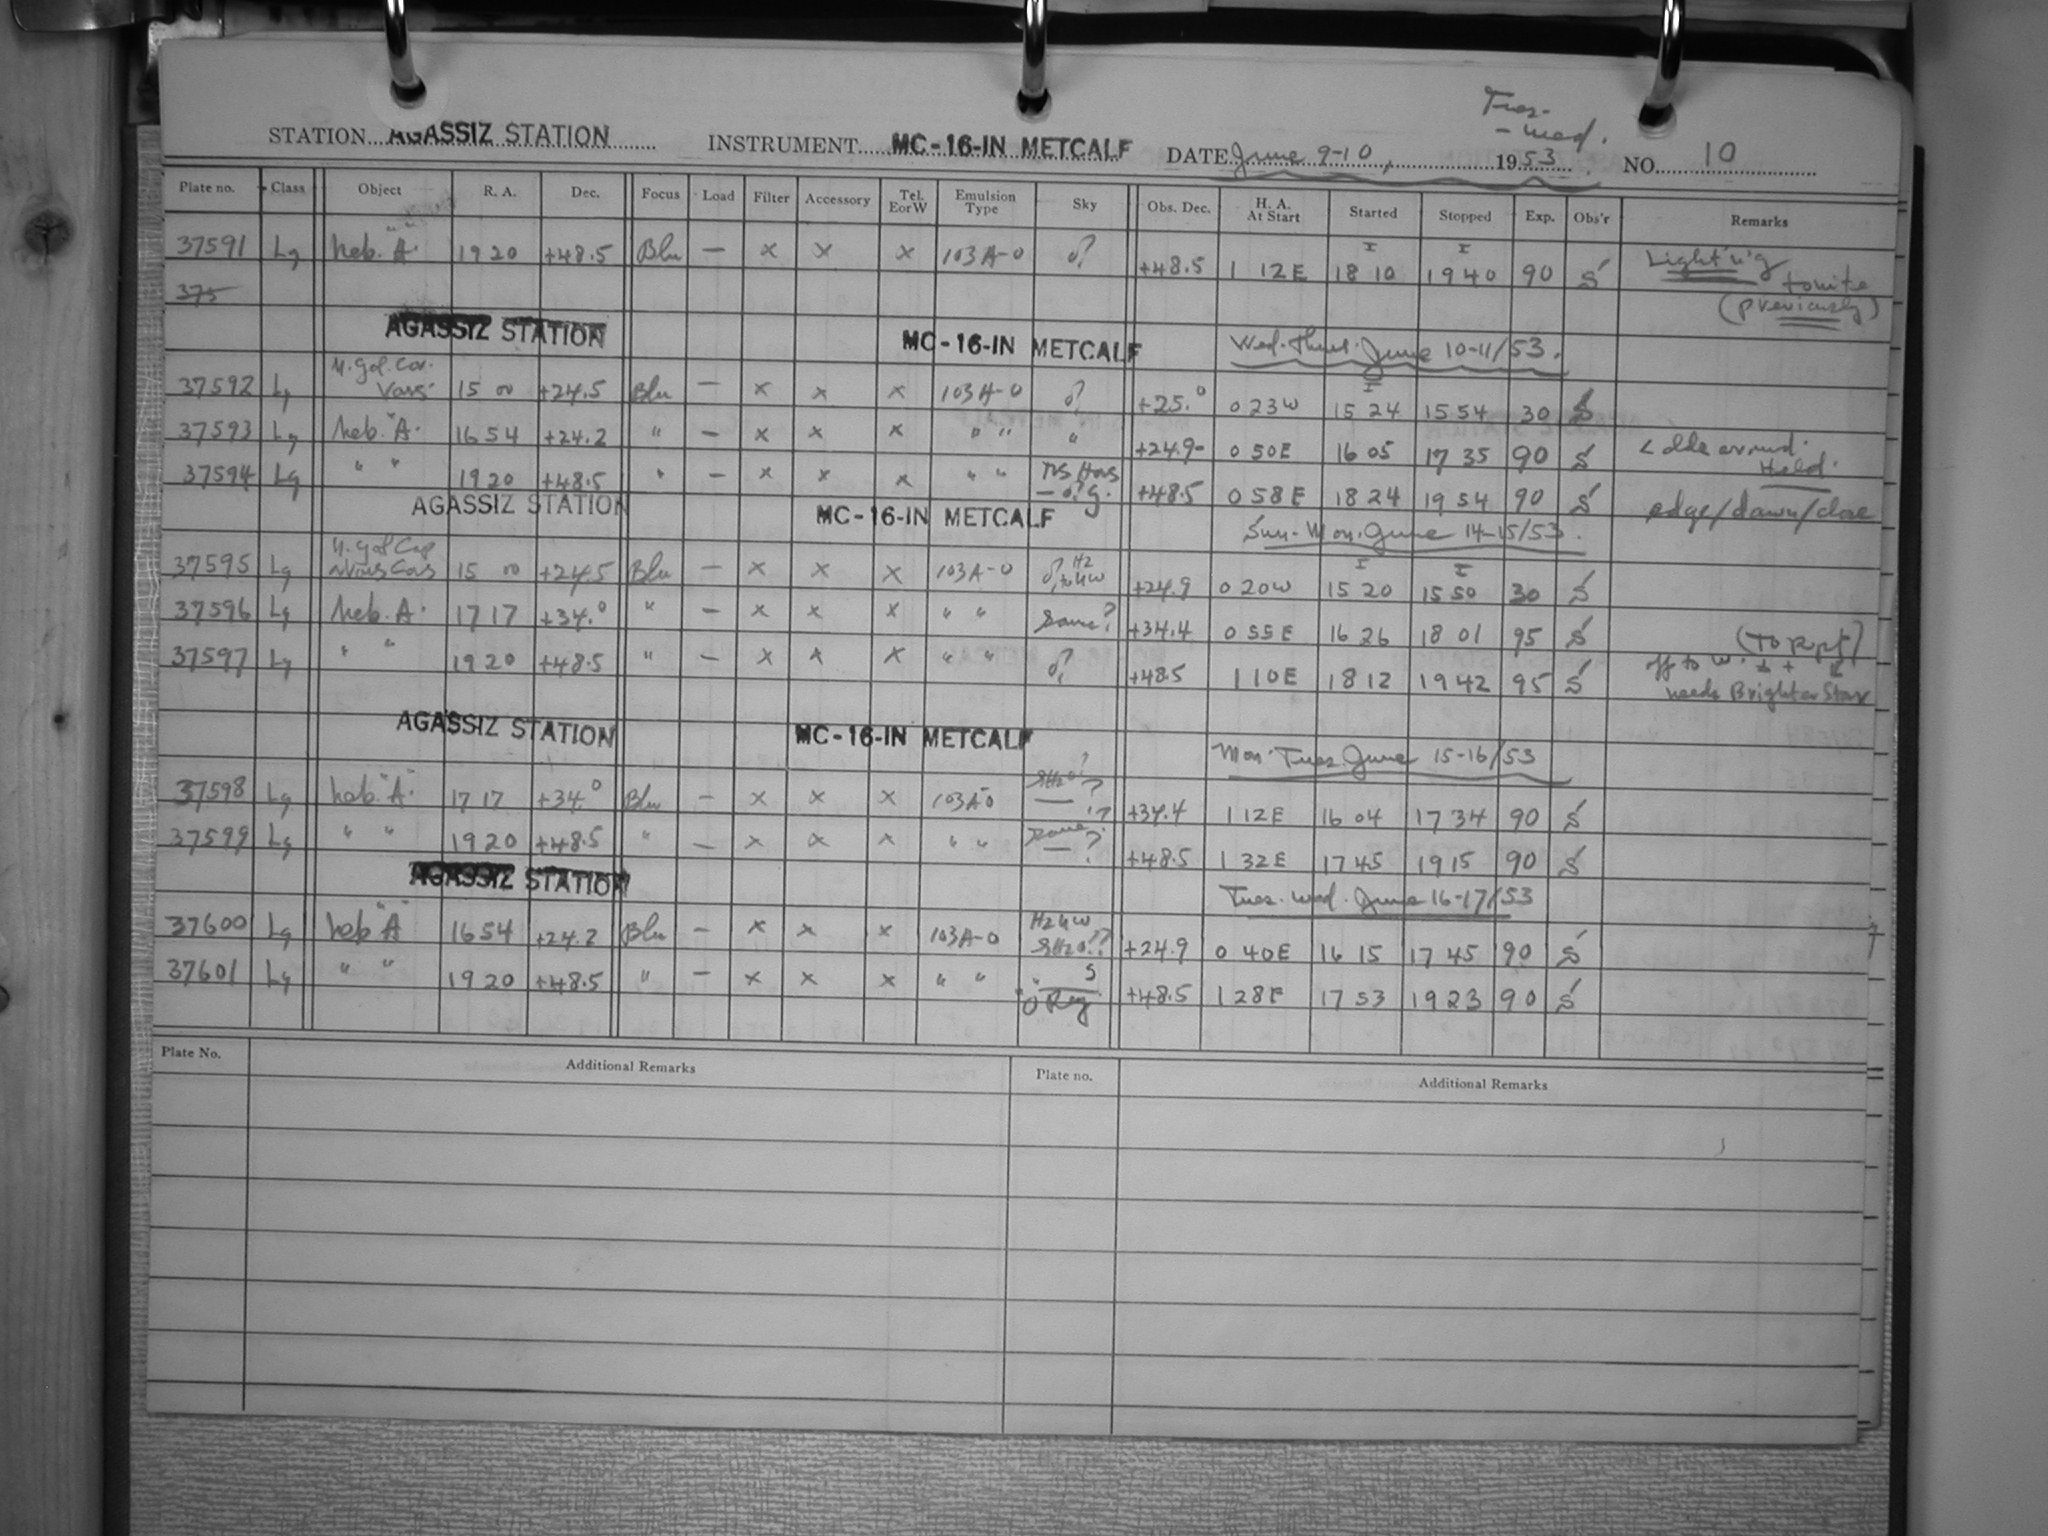 Tues-
-Wed.
STATION AGASSIZ STATION INSTRUMENT MC-16-IN METCALF DATE June 9-10, 1953 NO. 10
Plate no. Class Object R. A. Dec. Focus Load Filter Accessory Tel. EorW Emulsion Type Sky Obs. Dec. H. A. At Start Started Stopped Exp. Obs'r Remarks
37591 Lg neb. "A" 19 20 +48.5 Blu — x x x 103A-O +48.5 1 12E 18 10 19 40 90 S Light'n'g
375 tonite
(previously)
AGASSIZ STATION MC-16-IN METCALF Wed. Thurs. June 10-11/53.
37592 Lg Vars. 15 00 +24.5 Blu — x x x 103A-O +25.0 0 23W 15 24 15 54 30 S
37593 Lg neb. "A" 16 54 +24.2 " — x x x " " " +24.9- 0 50E 16 05 17 35 90 S around
Held.
37594 Lg " " 19 20 +48.5 " — x x x " " +48.5 0 58E 18 24 19 54 90 S edge/dawn/close
AGASSIZ STATION MC-16-IN METCALF Sun-Mon. June 14-15/53.
37595 Lg 15 00 +24.5 Blu — x x x 103A-O +24.9 0 20W 15 20 15 50 30 S
37596 Lg neb. A. 17 17 +34.0 " — x x x " " Same? +34.4 0 55E 16 26 18 01 95 S
(To Rpt)
37597 Lg " " 19 20 +48.5 " — x x x " " +48.5 1 10E 18 12 19 42 95 S off to W.
needs Brighter Star
AGASSIZ STATION MC-16-IN METCALF Mon Tues June 15-16/53
37598 Lg neb. "A" 17 17 +34.0 Blu — x x x 103A-O +34.4 1 12E 16 04 17 34 90 S
37599 Lg " " 19 20 +48.5 " — x x x " " Same? +48.5 1 32E 17 45 19 15 90 S
AGASSIZ STATION Tues. Wed. June 16-17/53
37600 Lg neb "A" 16 54 +24.2 Blu — x x x 103A-O +24.9 0 40E 16 15 17 45 90 S
37601 Lg " " 19 20 +48.5 " — x x x " " +48.5 1 28E 17 53 19 23 90 S
Plate No. Additional Remarks Plate no. Additional Remarks